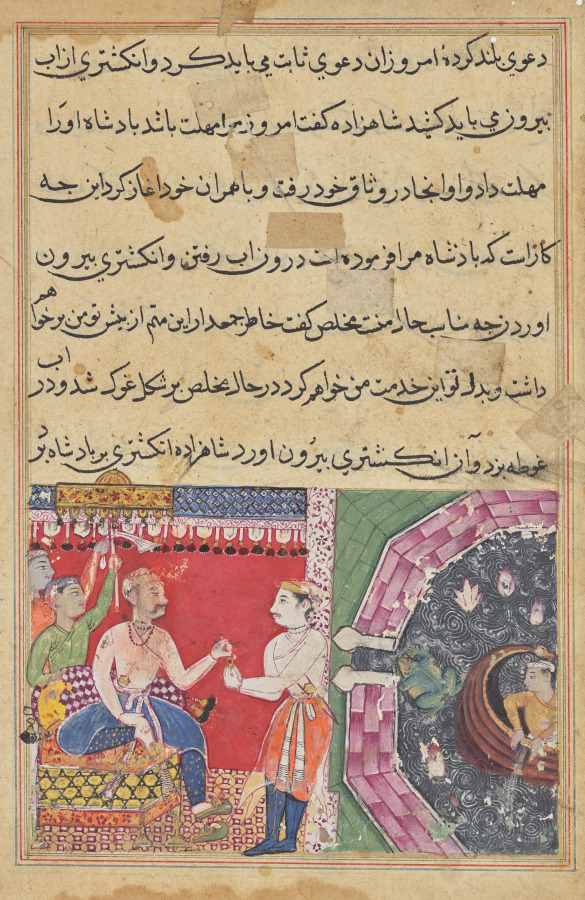 دعوي بلند كردهٔ امروزان دعوي ثابت مي بايد كرد و انكشتري از اب
بيرون مي بايد كشيد شاهزاده كفت امروز مرا مهلت باشد بادشاه اورا
مهلت داد و او انجا در وثاق خود رفت و با همران خود اغاز كرد اين چه
كار است كه بادشاه مرا فرموده است درون اب رفتن و انكشتري بيرون
اوردن چه مناسب حال منست مخلص كفت خاطر جمعدار اين مهم از پيش تو من برخواهم
داشت و بدل تو اين خدمت من خواهم كرد در حال مخلص بر شكل غوك شد و در اب
غوطه بزد و آن انكشتري بيرون اورد شاهزاده انكشتري بر بادشاه برد